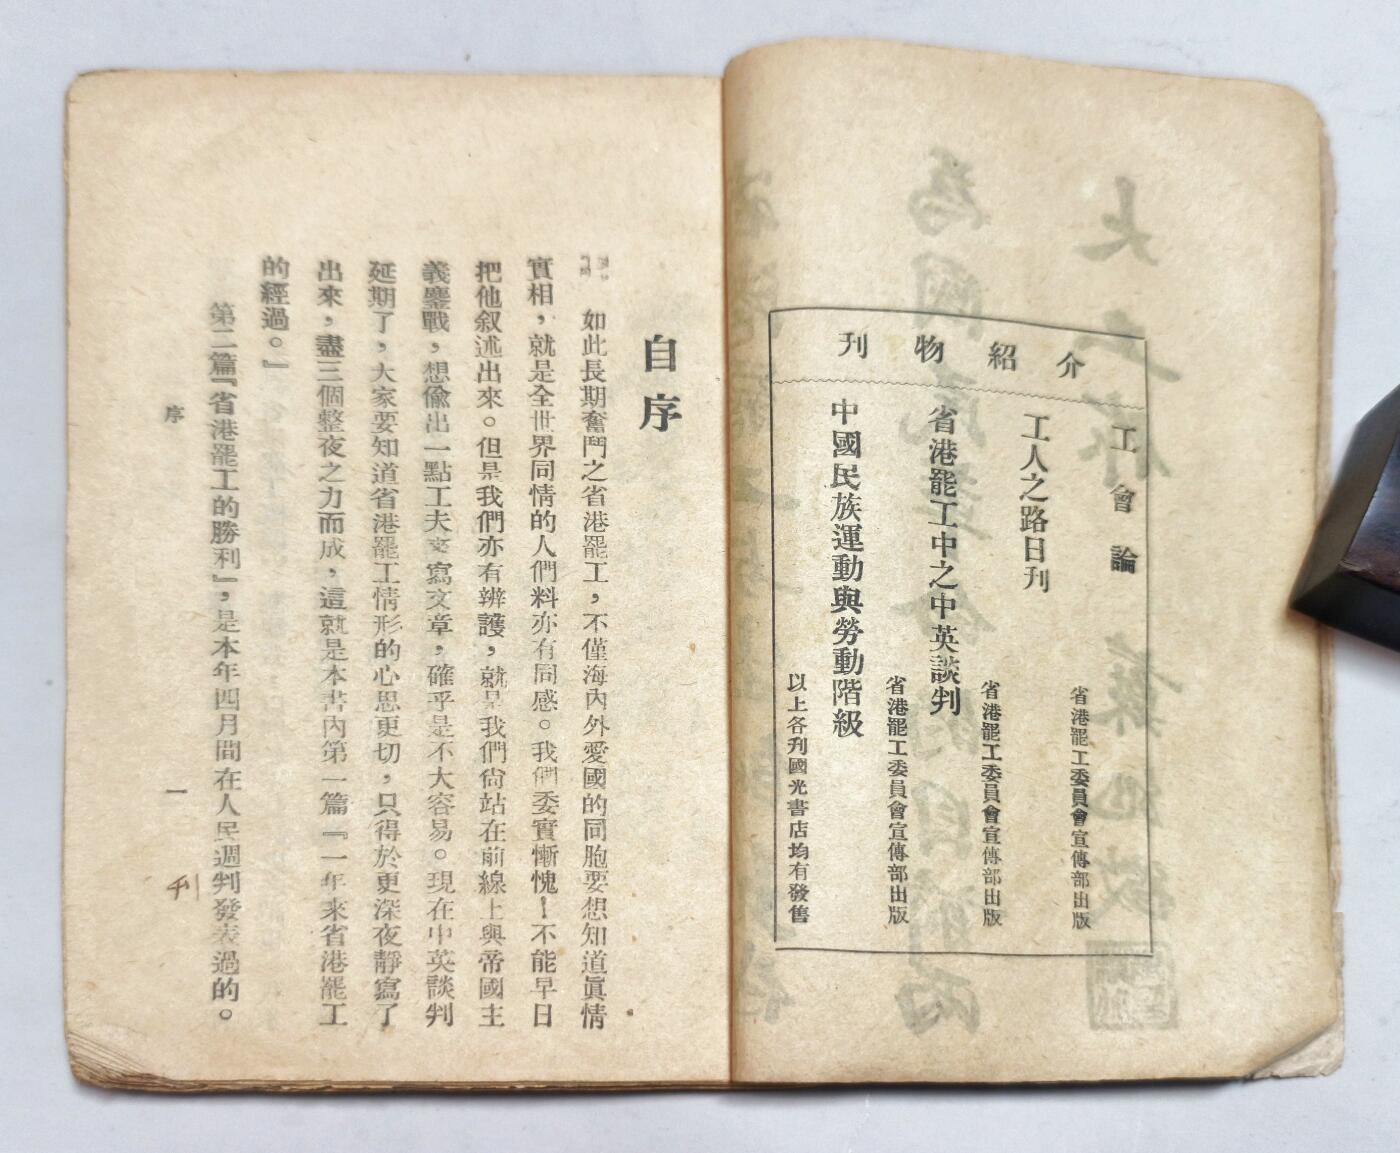 介紹物刊
工會論
省港罷工委員會宣傳部出版
工人之路日刋
省港罷工委員會宣傳部出版
省港罷工中之中英談判
省港罷工委員會宣傳部出版
中國民族運動與勞動階級
以上各刋國光書店均有發售
自序
如此長期奮鬥之省港罷工，不僅海內外愛國的同胞要想知道眞情
實相，就是全世界同情的人們料亦有同感。我們委實慚愧！不能早日
把他叙述出來。但是我們亦有辨護，就是我們尙站在前線上與帝國主
義鏖戰，想偸出一點工夫來寫文章，確乎是不大容易。現在中英談判
延期了，大家要知道省港罷工情形的心思更切，只得於更深夜靜寫了
出來，盡三個整夜之力而成，這就是本書內第一篇『一年來省港罷工
的經過。』
第二篇『省港罷工的勝利』，是本年四月間在人民週判發表過的。
序
一
刋